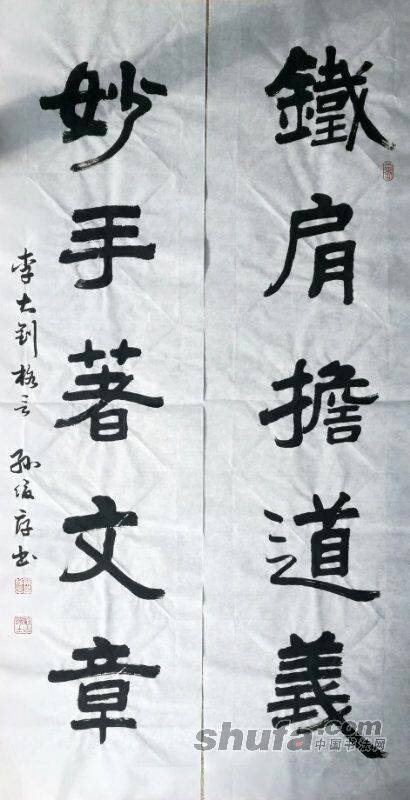 鐵肩擔道義
妙手著文章
李大釗格言 孫俊存書
shufa.com
中国书法网